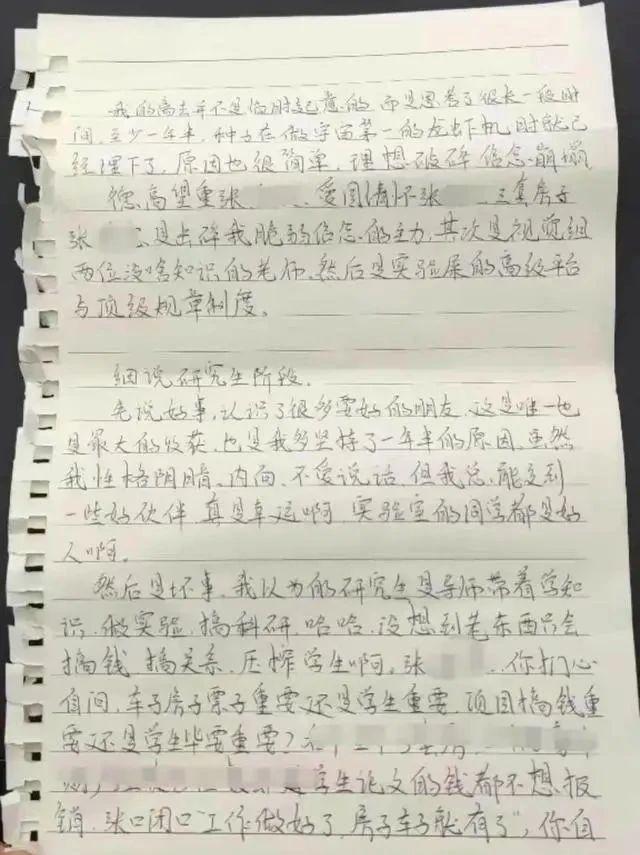 我的离去并不是临时起意的，而是思考了很长一段时
间，至少一年半，种子在做宇宙第一的龙虾机时就已
经埋下了，原因也很简单，理想破碎 信念崩塌
德高望重张 、爱国情怀张 、三套房子
张 是击碎我脆弱信念的主力，其次是视觉组
两位没啥知识的老师，然后是实验屎的高级平台
与顶级规章制度。
细说研究生阶段.
先说好事，认识了很多要好的朋友，这是唯一也
是最大的收获，也是我多坚持了一年半的原因，虽然
我性格阴暗、内向、不爱说话，但我总能交到
一些好伙伴，真是幸运啊，实验室的同学都是好
人啊。
然后是坏事，我以为的研究生是导师带着学知
识、做实验、搞科研，哈哈，没想到老东西只会
搞钱、搞关系、压榨学生啊。张 ，你扪心
自问，车子房子票子重要还是学生重要，项目搞钱重
要还是学生毕业重要？
学生论文的钱都不想报
销，张口闭口“工作做好了，房子车子就有了”，你自